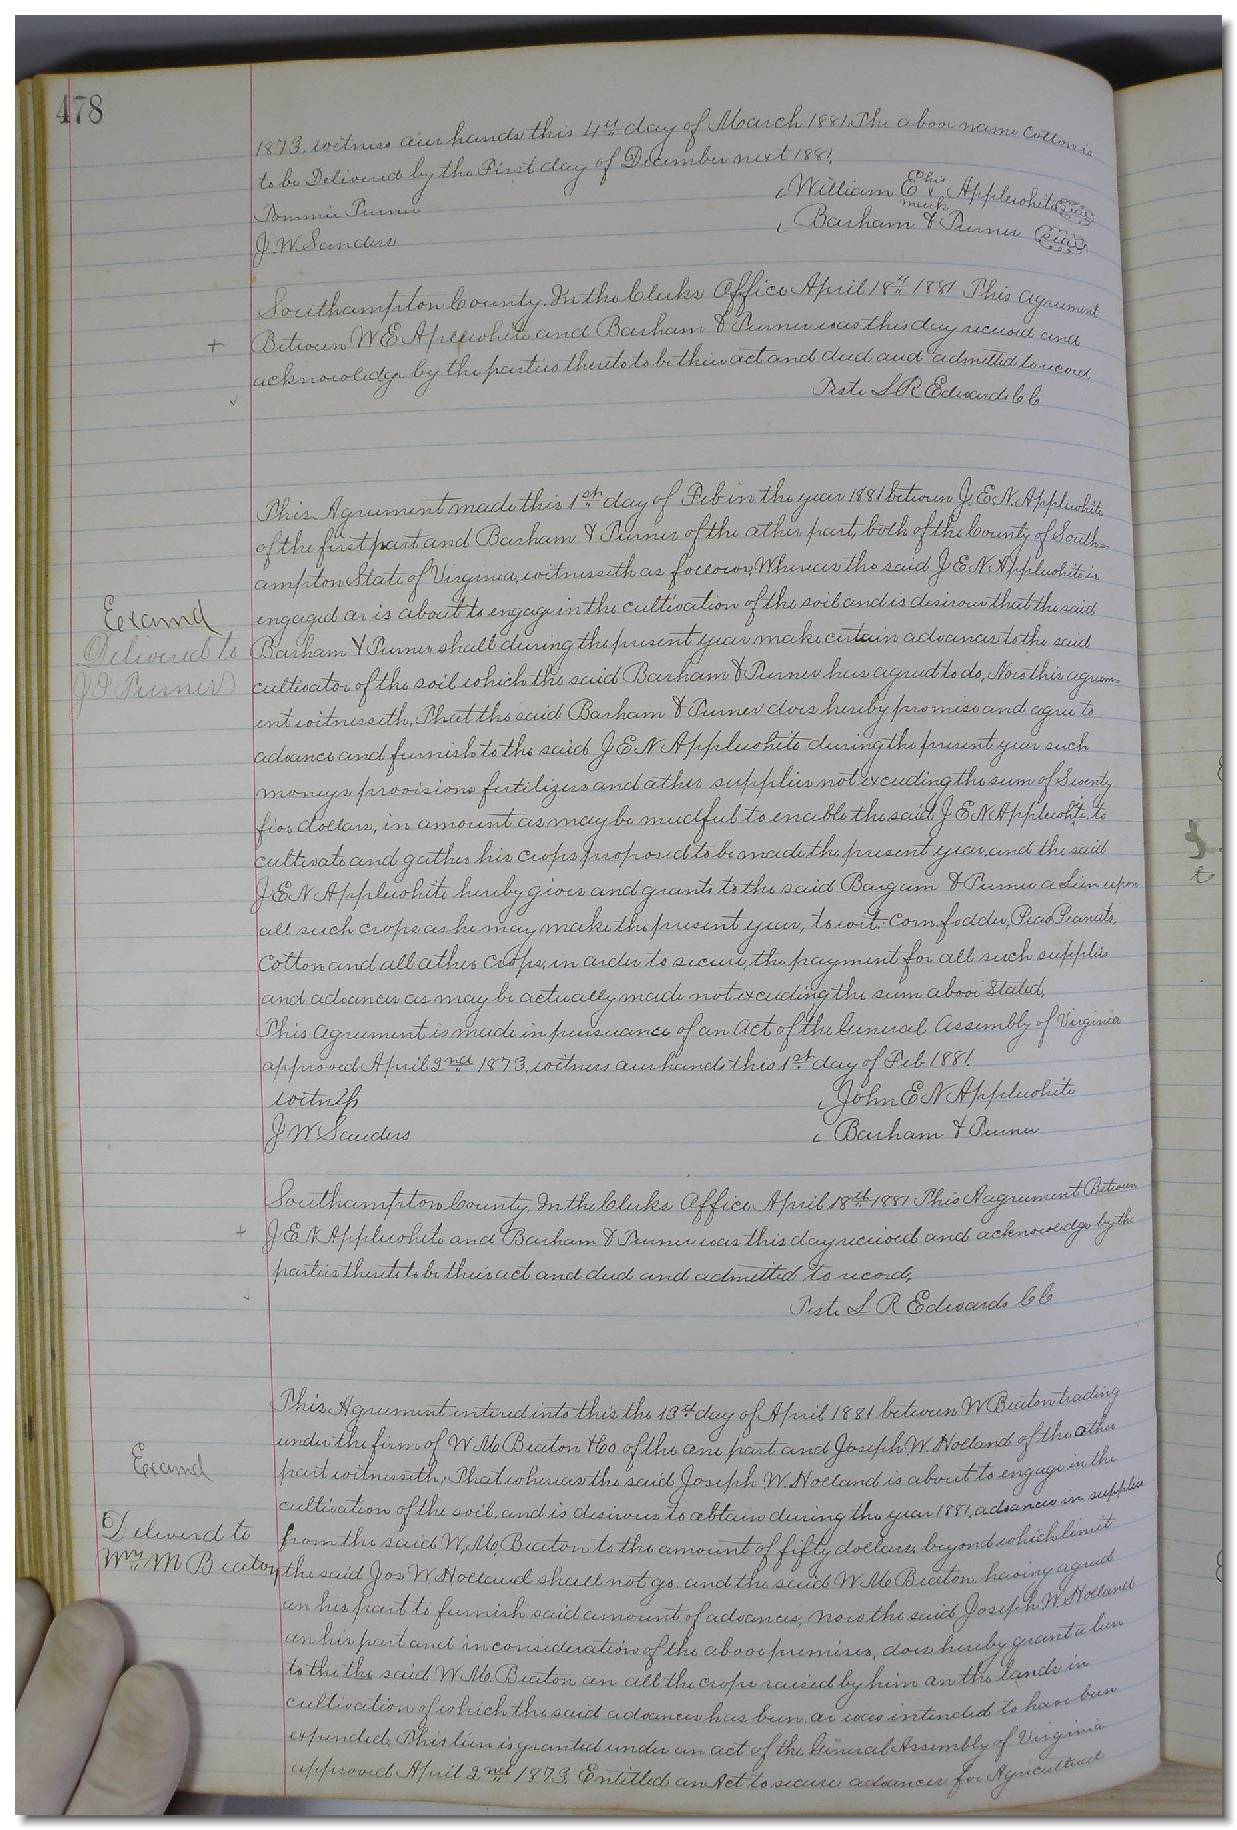 478
1873, witness our hands this 4th day of March 1881. The above name Cotton is
to be Delivered by the First day of December next 1881.
William E his x mark Applewhite seal
Tommie Turner
Barham & Turner seal
J. W. Sanders
Southampton County. In the Clerks Office April 18th 1881 This agreement
Between W E Applewhite and Barham & Turner was this day received and
+
acknowledge by the parties thereto to be their act and deed and admitted to record
Teste L R Edwards C C
This Agreement made this 1st day of Feb in the year 1881 between J. E. N. Applewhite
of the first part and Barham & Turner of the other part, both of the County of South=
ampton State of Virginia, witnesseth as follows, Whereas the said J E N Applewhite is
engaged or is about to engage in the cultivation of the soil and is desirous that the said
Examd
Barham & Turner shall during the present year make certain advances to the said
Delivered to
cultivator of the soil which the said Barham & Turner has agreed to do, Now this agreem-
J D Turner
ent witnesseth, That the said Barham & Turner does hereby promise and agree to
advance and furnish to the said J E N Applewhite during the present year such
moneys provisions fertilizers and other supplies not exceeding the sum of Seventy
five dollars, in amount as may be needful to enable the said J E N Applewhite, to
cultivate and gather his crops proposed to be made the present year, and the said
J E N Applewhite hereby gives and grants to the said Bargam & Turner a Lien upon
all such crops as he may make the present year, to wit: Corn, fodder, Peas Peanuts,
Cotton and all other crops, in order to secure, the payment for all such supplies
and advances as may be actually made not exceeding the sum above Stated,
This Agreement is made in persuance of an Act of the General Assembly of Virginia
approved April 2nd 1873, witness our hands this 1st day of Feb 1881.
witness
John E N Applewhite
J W Sanders
Barham & Turner
Southampton County, In the Clerks Office April 18th 1881 This Aagreement Between
+
J E N Applewhite and Barham & Turner was this day received and acknowledge by the
parties thereto to be their act and deed and admitted to record,
Teste L R Edwards C C
This Agreement entered into this the 13th day of April 1881 between W Beaton trading
under the firm of W. M. Beaton & Co of the one part and Joseph W. Holland of the other
Examd
part witnesseth, That whereas the said Joseph W. Holland is about to engage in the
cultivation of the soil, and is desirous to obtain during the year 1881, advances in supplies
Deliverd to
from the said W. M. Beaton to the amount of fifty dollars, beyond which limit
Wm M Beaton
the said Jos W. Holland shall not go, and the said W. M. Beaton having agreed
on his part to furnish said amount of advances, now the said Joseph W. Holland
on his part and in consideration of the above premises, does hereby grant a lien
to the the said W. M. Beaton on all the crops raised by him on the lands in
cultivation of which the said advances has been or was intended to have been
expended, This lien is granted under an act of the General Assembly of Virginia
approved April 2nd 1873, Entitled an Act to secure advances for Agricultural